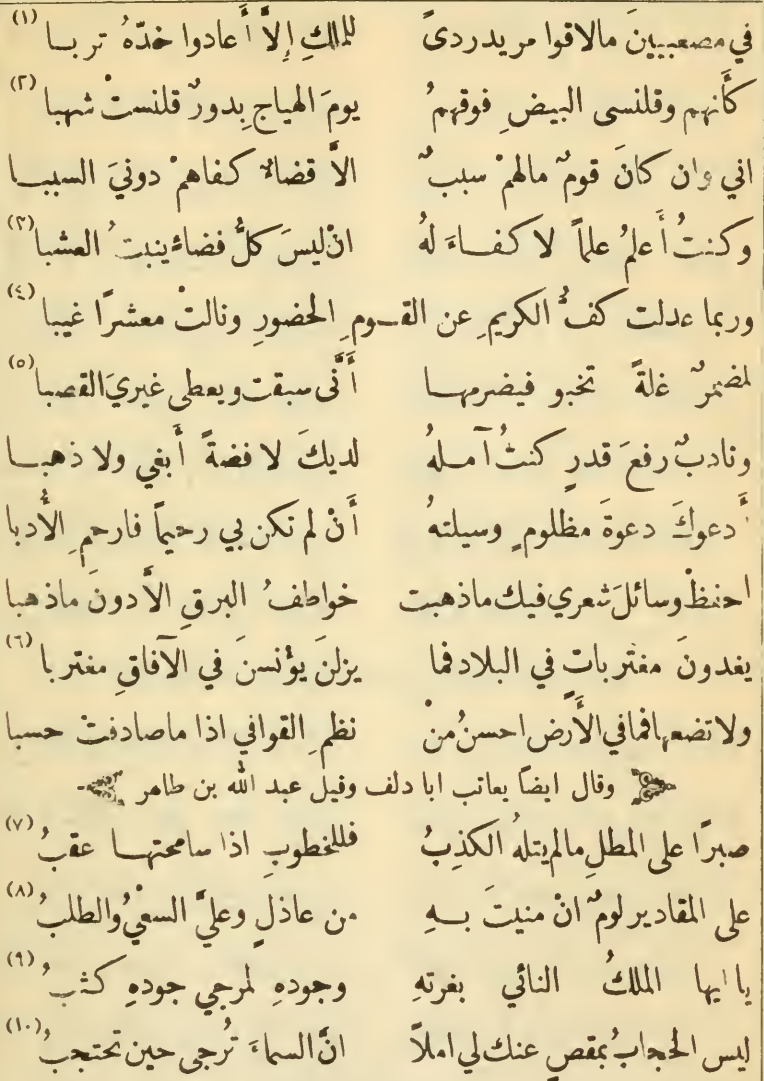 في مصعبيينَ مالاقوا مريد ردىً للملكِ إلاَّ أَعادوا خدّهُ تربا (١)
كأَنهم وقلنسى البيضِ فوقهمُ يومَ الهياجِ بِدورٌ قلنستْ شهبا (٢)
اني وان كانَ قومٌ مالهمْ سببٌ الاَّ قضاءٌ كفاهمْ دونيَ السببا
وكنتُ أَعلمُ علماً لا كفاءَ لهُ انْ ليسَ كلُّ فضاءً ينبتُ العشبا (٣)
وربما عدلت كفُّ الكريمِ عن القومِ الحضورِ ونالتْ معشرًا غيبا (٤)
لمضمرٌ غلةً تخبو فيضرمها أَنّى سبقت ويعطى غيريَ القصبا (٥)
ونادبٌ رفعَ قدرٍ كنتُ آملهُ لديكَ لا فضةً أَبغي ولا ذهبا
أَدعوكَ دعوةَ مظلومٍ وسيلتهُ أَنْ لم تكن بي رحيماً فارحمِ الأُدبا
احفظْ وسائلَ شعري فيك ماذهبت خواطفُ البرقِ الاَّ دونَ ماذهبا
يغدونَ مغتربات في البلاد فما يزلنَ يؤْنسنَ في الآفاقِ مغتربا (٦)
ولا تضعها فما في الأَرض احسنُ منْ نظمِ القوافي اذا ما صادفتْ حسبا
وقال ايضاً يعاتب ابا دلف وقيل عبد الله بن طاهر
صبرًا على المطلِ مالم يتلهُ الكذِبُ فللخطوبِ اذا سامحتها عقبُ (٧)
على المقادير لومٌ انْ منيتَ بهِ من عاذلٍ وعليَّ السعيُ والطلبُ (٨)
يا ايها الملكُ النائي بغرتهِ وجودهِ لمرجي جودهِ كثبُ (٩)
ليس الحجابُ بمقصٍ عنك لي املاً انَّ السماءَ تُرجى حين تحتجبُ (١٠)